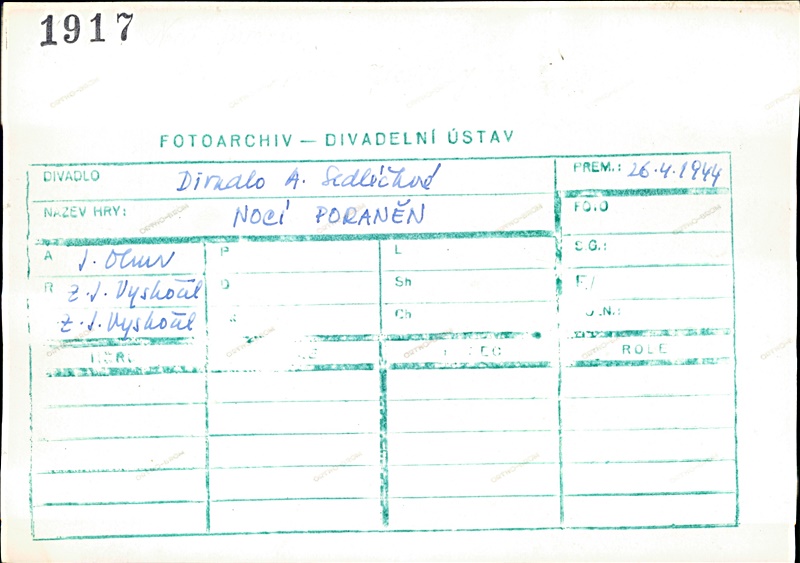 1917
FOTOARCHIV — DIVADELNÍ ÚSTAV
DIVADLO Divadlo A. Sedláčkové PREM.: 26.4.1944
NÁZEV HRY: NOCÍ PORANĚN FOTO
A J. P L S.G.:
R Z. J. Vyskočil Sh
Z. J. Vyskočil Ch
ROLE